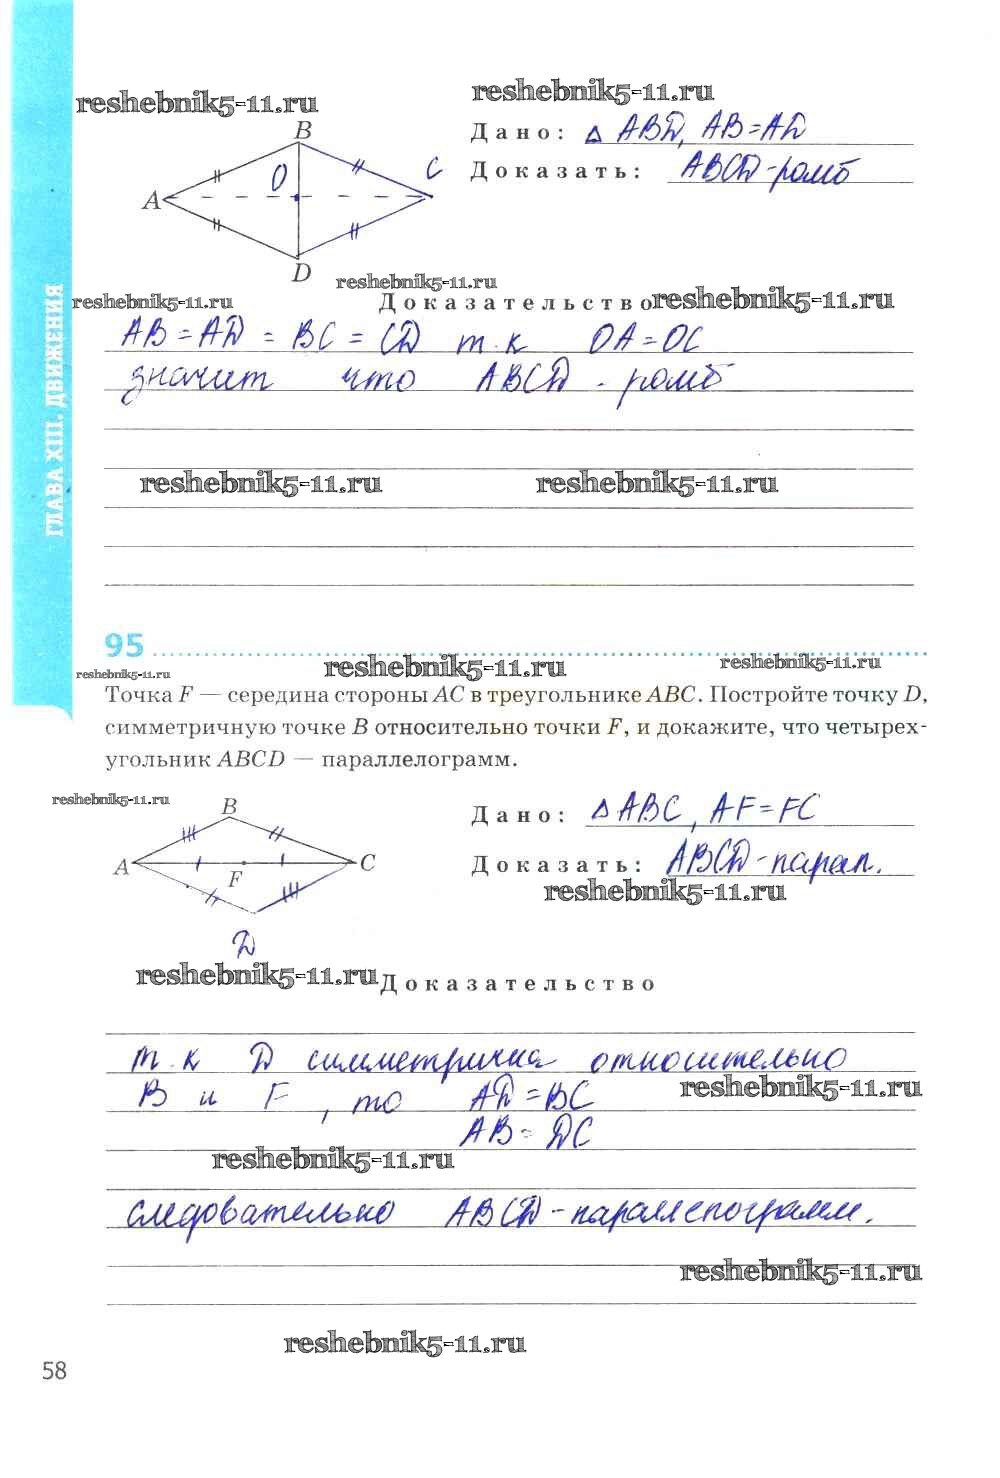 reshebnik5-11.ru
reshebnik5-11.ru
B
O
C
A
D
Дано: Δ ABD, AB=AD
Доказать: ABCD-ромб
reshebnik5-11.ru
reshebnik5-11.ru
Доказательство
reshebnik5-11.ru
AB=AD = BC = CD т.к OA=OC
значит что ABCD - ромб
reshebnik5-11.ru
reshebnik5-11.ru
ГЛАВА XIII. ДВИЖЕНИЯ
95
reshebnik5-11.ru
reshebnik5-11.ru
reshebnik5-11.ru
Точка F — середина стороны AC в треугольнике ABC. Постройте точку D,
симметричную точке B относительно точки F, и докажите, что четырех-
угольник ABCD — параллелограмм.
reshebnik5-11.ru
B
A
F
C
D
Дано: Δ ABC, AF=FC
Доказать: ABCD-парал.
reshebnik5-11.ru
reshebnik5-11.ru
Доказательство
т.к D симметрична относительно
B и F, то AD=BC
reshebnik5-11.ru
AB=DC
reshebnik5-11.ru
следовательно ABCD-параллелограмм.
reshebnik5-11.ru
reshebnik5-11.ru
58